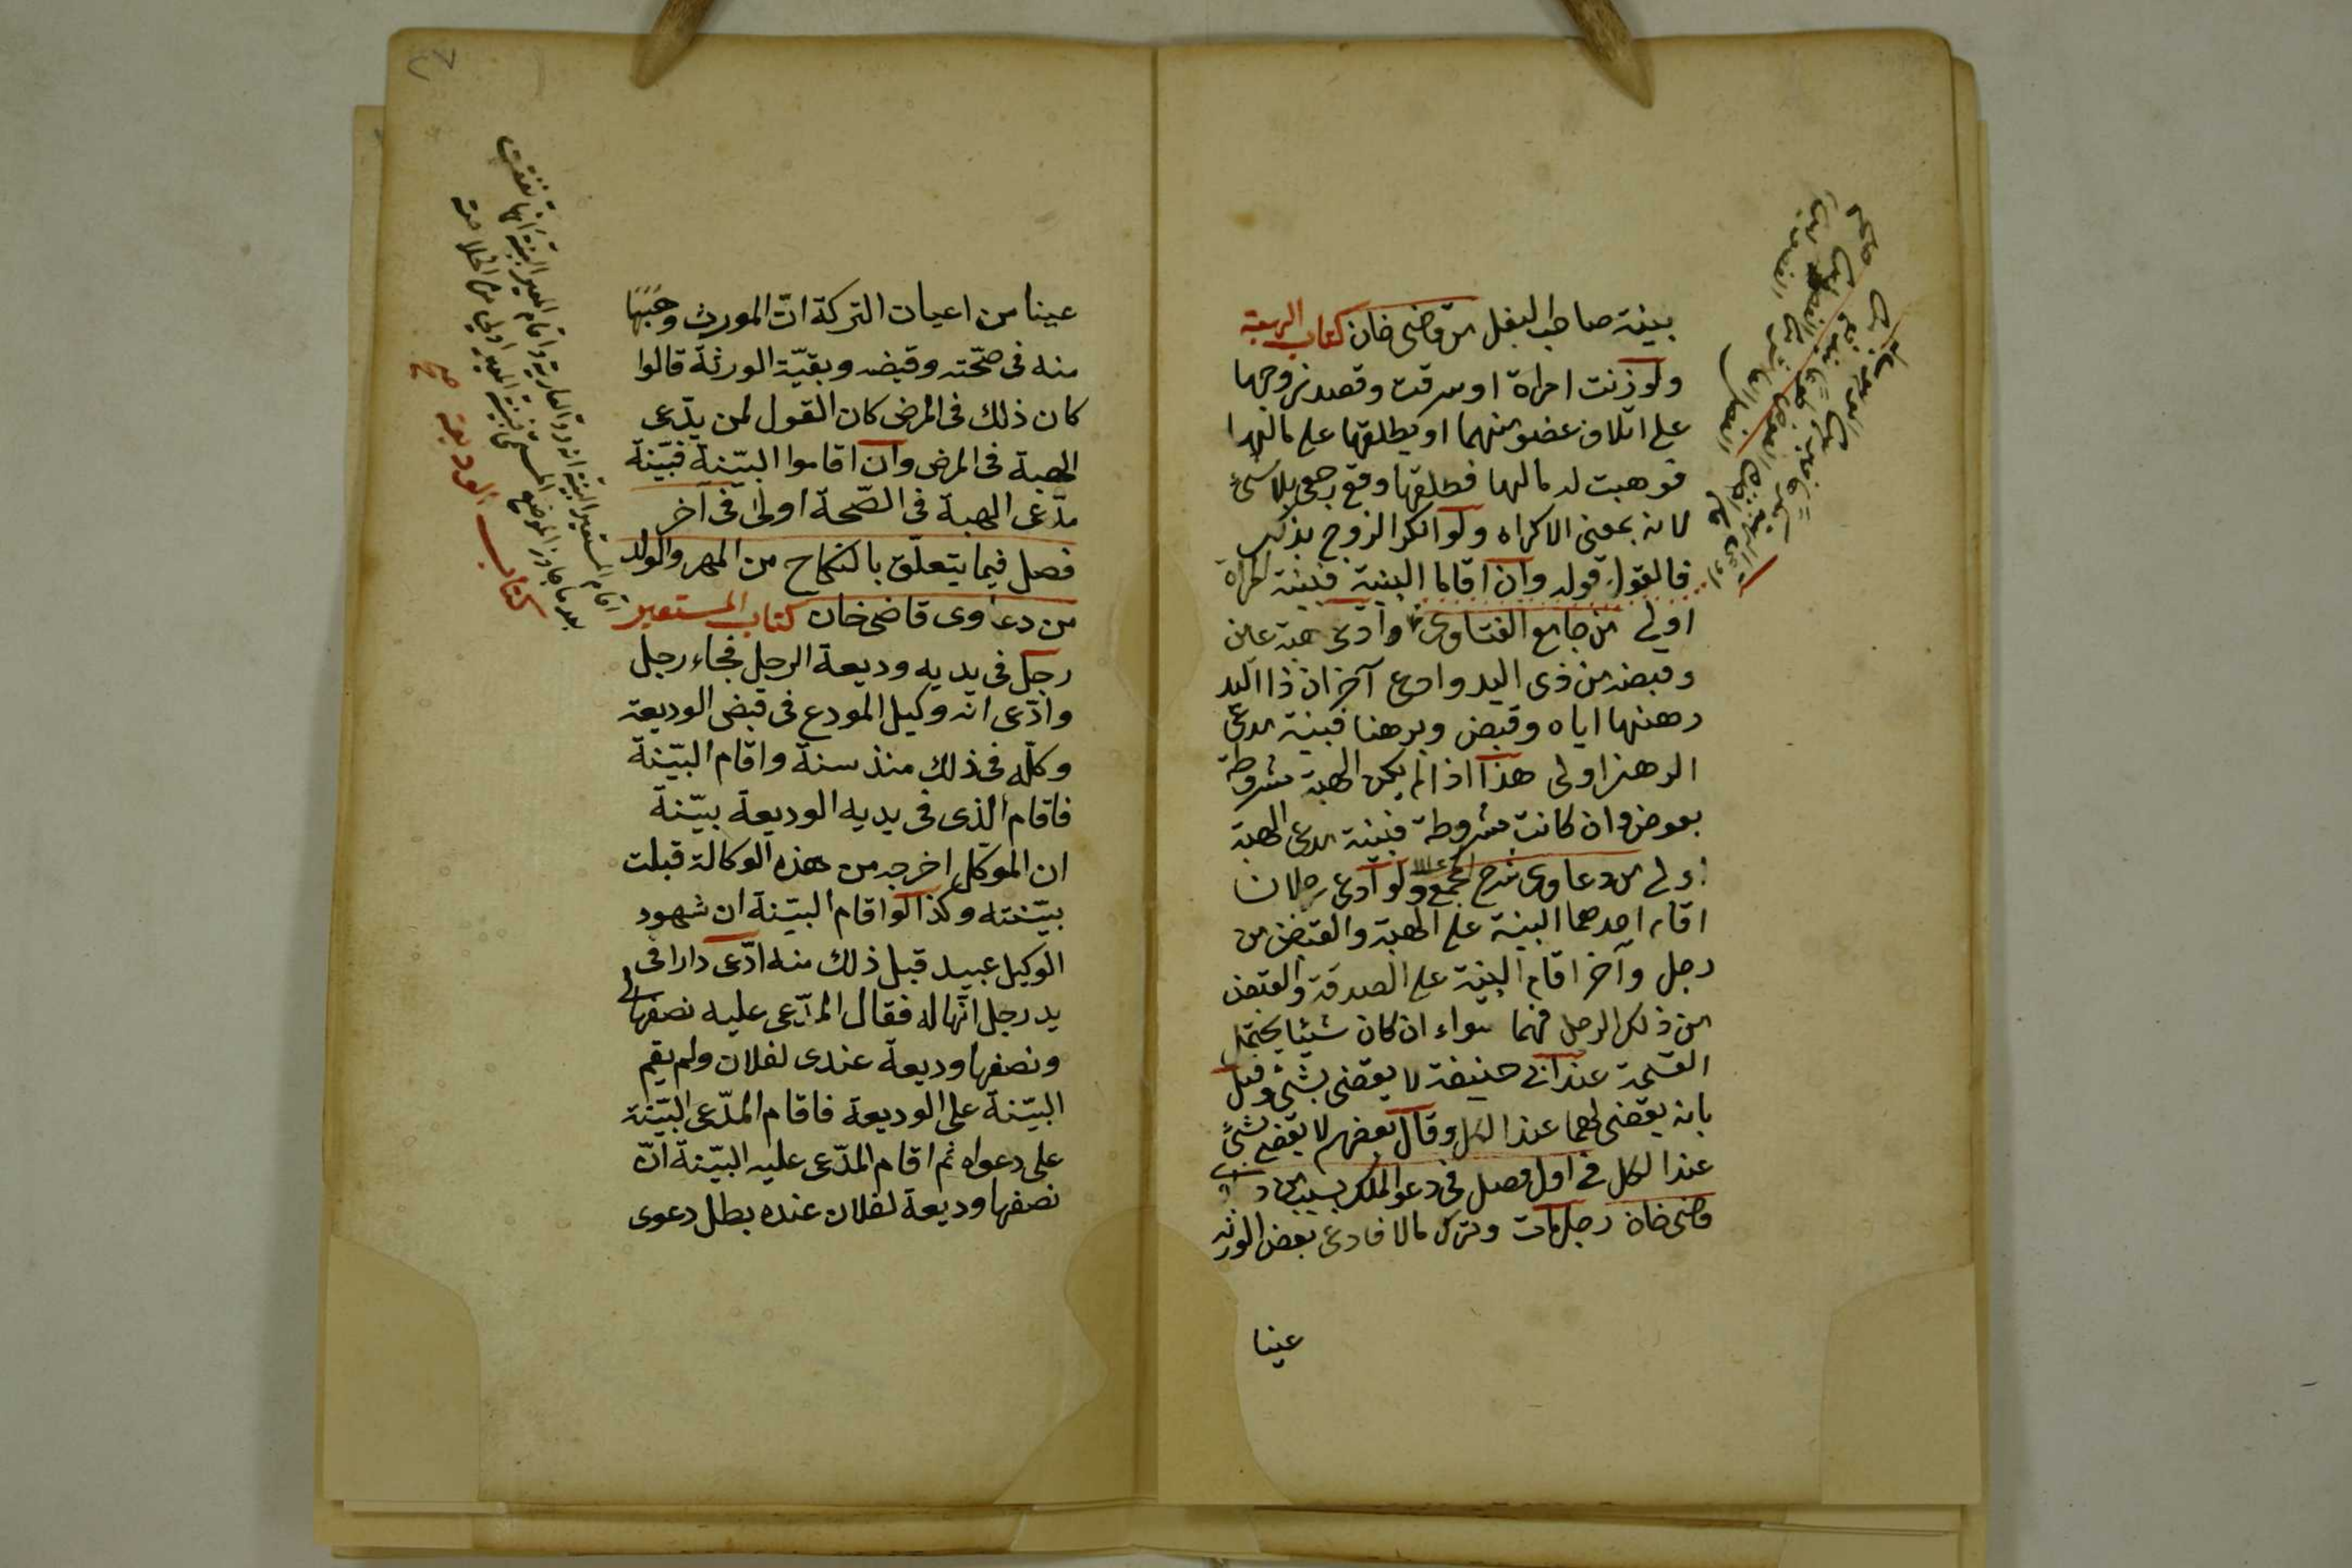 بينة صاحب البغل من قاضى خان كتاب الهبة
ولو زنت امراة او سرقت وقصد زوجها
على اتلاف عضو منهما او يطلقها على مالها
فوهبت له مالها فطلقها وقع رجعى بلا شئ
لانه بمعنى الاكراه ولو انكر الزوج بذلك
فالقول قوله وان اقاما البينة فبينة المراة
اولى من جامع الفتاوى وادعى هبة عين
وقبضه من ذى اليد وادعى آخر ان ذا اليد
رهنها اياه وقبض وبرهنا فبينة مدعى
الرهن اولى هذا اذا لم يكن الهبة مشروطة
بعوض وان كانت مشروطة فبينة مدعى الهبة
اولى من دعاوى شرح المجمع ولو ادعى رجلان
اقام احدهما البينة على الهبة والقبض من
رجل وآخر اقام البينة على الصدقة والقبض
من ذلك الرجل فهما سواء ان كان شيئا يحتمل
القسمة عند ابى حنيفة لا يقضى بشئ وقيل
بانه يقضى لهما عند الكل وقال بعضهم لا يقضى بشئ
عند الكل فى اول فصل فى دعوى الملك بسبب من
قاضى خان رجل مات وترك مالا فادعى بعض الورثة
عينا
عينا من اعيان التركة انّ المورث وهبها
منه فى صحّته وقبضه وبقيّة الورثة قالوا
كان ذلك فى المرض كان القول لمن يدّعى
الهبة فى المرض وان اقاموا البيّنة فبيّنة
مدّعى الهبة فى الصّحة اولى فى آخر
فصل فيما يتعلّق بالنكاح من المهر والولد
من دعاوى قاضى خان كتاب المستعير
رجل فى يديه وديعة الرجل فجاء رجل
وادّعى انه وكيل المودع فى قبض الوديعة
وكلّه فى ذلك منذ سنة واقام البيّنة
فاقام الذى فى يديه الوديعة بيّنة
ان الموكّل اخرجه من هذه الوكالة قبلت
بيّنته وكذا لو اقام البيّنة ان شهود
الوكيل عبيد قبل ذلك منه ادّعى دارا فى
يد رجل انّها له فقال المدّعى عليه نصفها لى
ونصفها وديعة عندى لفلان ولم يقم
البيّنة على الوديعة فاقام المدّعى البيّنة
على دعواه ثم اقام المدّعى عليه البيّنة انّ
نصفها وديعة لفلان عنده بطل دعوى
اقام المستعير البينة انه رد العارية واقام المعير البينة انها نفقت
بعد ما جاوز الموضع المسمى فبينة المعير اولى من الخلاصة
كتاب الوديعة صح
٢٧